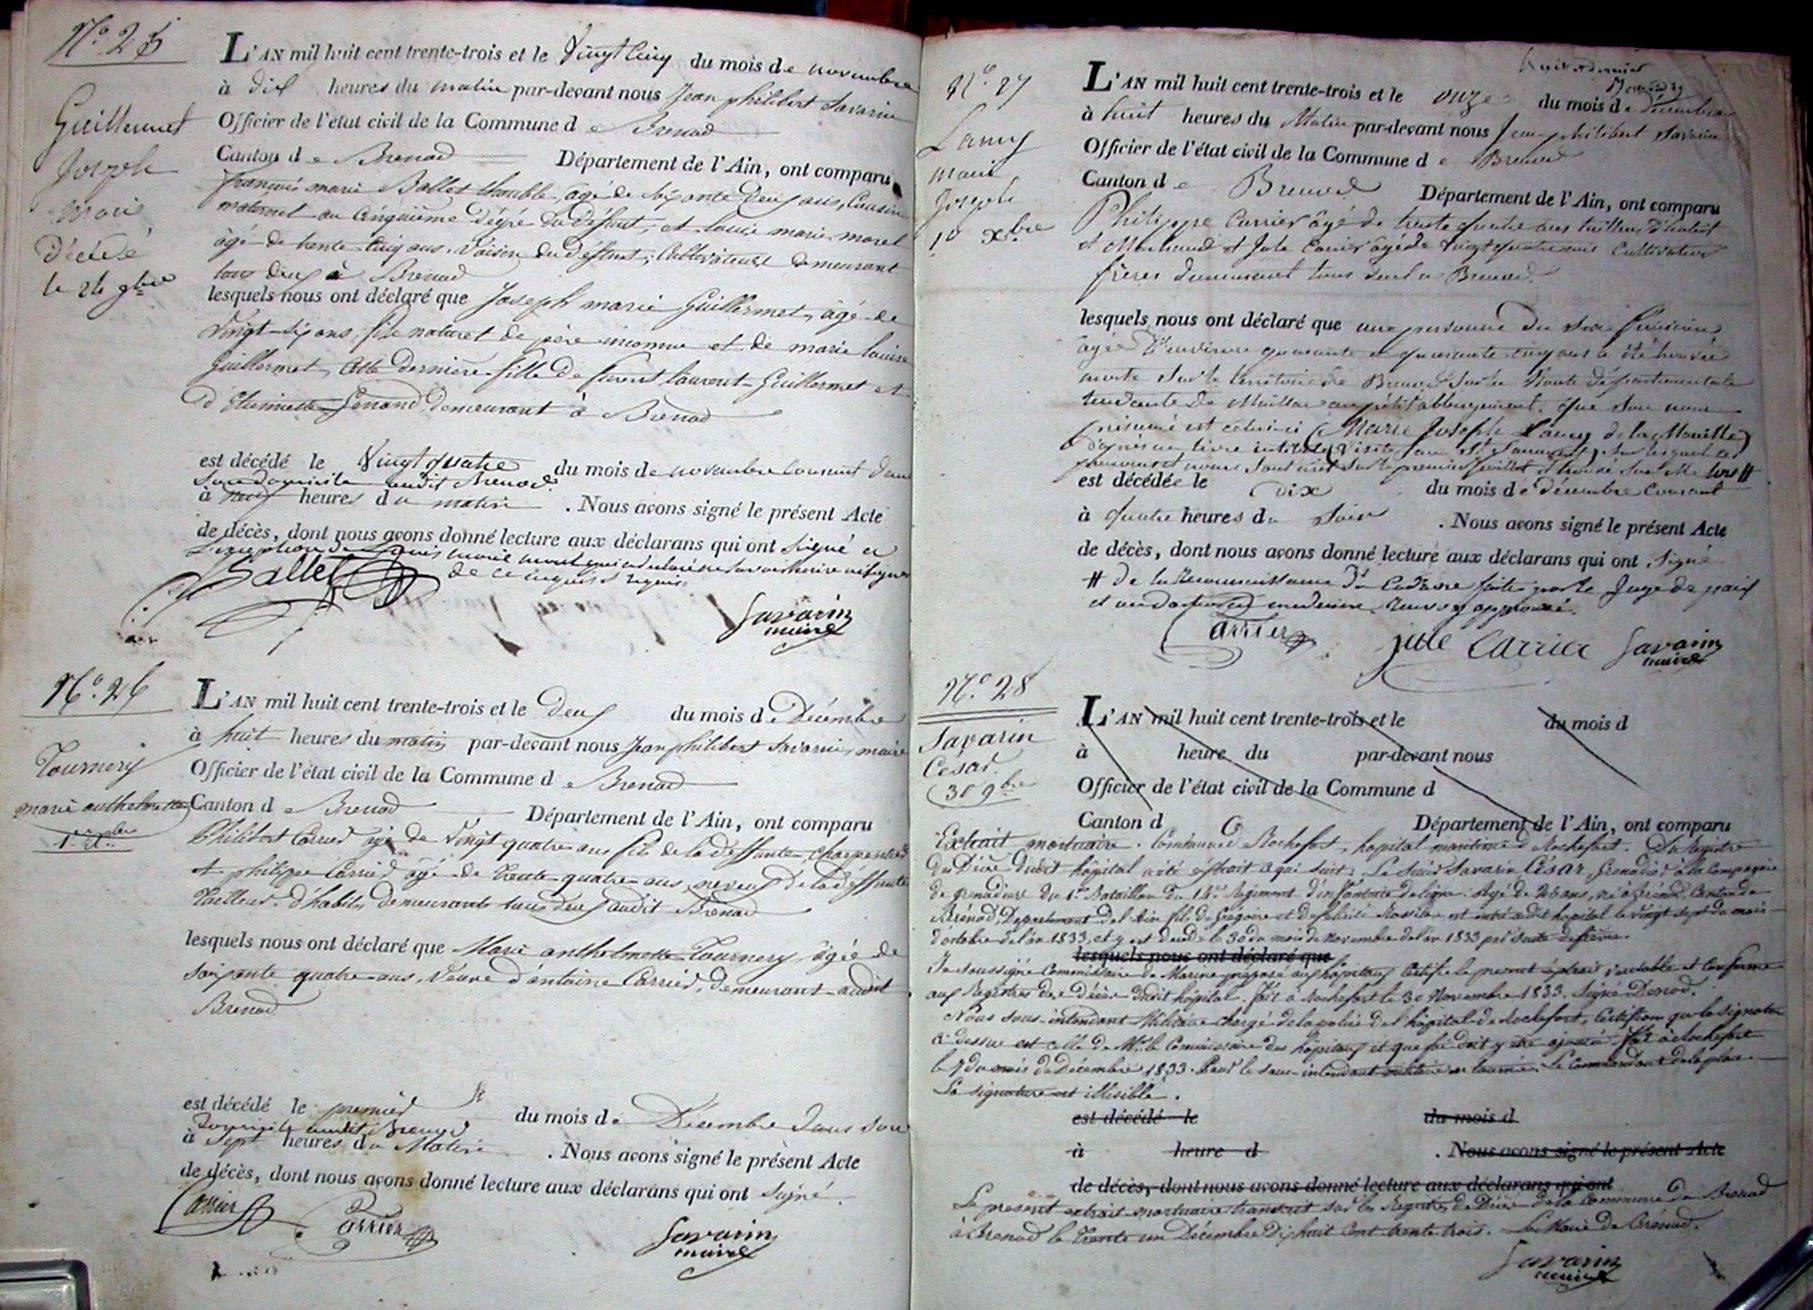 N.º 25
Guillermet
Joseph
Marie
Décédé
le 24 9bre
L'AN mil huit cent trente-trois et le Vingt Cinq du mois de novembre
à dix heures du matin par-devant nous Jean philibert Savarin
Officier de l'état civil de la Commune d e Brenod
Canton d e Brenod Département de l'Ain, ont comparu
françois marie Ballet âgé de soixante deux ans, Cousin
maternel au Cinquième degré du défunt, et louis marie morel
âgé de trente cinq ans, Voisin du défunt, Cultivateurs demeurant
tous deux à Brenod
lesquels nous ont déclaré que Joseph marie Guillermet, âgé de
Vingt-six ans, fils naturel de père inconnu et de marie louise
Guillermet, cette dernière fille de laurent Guillermet et
d'Etiennette demeurant à Brenod
est décédé le Vingt quatre du mois de novembre Courant dans
son domicile audit Brenod
à heures du matin . Nous avons signé le présent Acte
de décès, dont nous avons donné lecture aux déclarans qui ont signé à
l'exception de Louis marie morel qui a déclaré ne savoir écrire ni signer
de ce enquis et requis
Ballet
Savarin
maire
N.º 26
Tournery
marie anthelmette
1er Xbre
L'AN mil huit cent trente-trois et le deux du mois de Décembre
à huit heures du matin par-devant nous Jean philibert Savarin, maire
Officier de l'état civil de la Commune d e Brenod
Canton d e Brenod Département de l'Ain, ont comparu
Philibert Carrier âgé de Vingt quatre ans fils de la deffunte charpentier
et philippe Carrier âgé de trente quatre ans, neveux de la deffunte
Tailleur d'habits, demeurants tous deux audit Brenod
lesquels nous ont déclaré que Marie anthelmette Tournery âgée de
soixante quatre ans, Veuve d'antoine Carrier, demeurant audit
Brenod
est décédé le premier du mois de Décembre dans son
domicile audit Brenod
à sept heures du Matin . Nous avons signé le présent Acte
de décès, dont nous avons donné lecture aux déclarans qui ont signé
Carrier
Carrier
Savarin
maire
N.º 27
Lamy
marie
Joseph
10 Xbre
L'AN mil huit cent trente-trois et le onze du mois de Décembre
à huit heures du Matin par-devant nous Jean philibert Savarin
Officier de l'état civil de la Commune d e Brenod
Canton d e Brenod Département de l'Ain, ont comparu
Philippe Carrier âgé de trente quatre ans tailleur d'habits
et Marchand et Jule Carrier âgé de vingt quatre ans Cultivateur
frères demeurant tous deux à Brenod
lesquels nous ont déclaré que une personne du sexe féminin
âgée d'environ quarante à quarante cinq ans a été trouvée
morte sur le territoire de Brenod sur la Route départementale
tendante de Maillat au petit abbergement. Que son nom
présumé est celui-ci (Marie Joseph Lamy de la Mouille)
d'après un livre intitulé (Visite au St. Sacrement) sur lequel
est décédée le dix du mois de Décembre Courant
à quatre heures du Soir . Nous avons signé le présent Acte
de décès, dont nous avons donné lecture aux déclarans qui ont signé
# de la Reconnaissance du Cadavre faite par le Juge de paix
et un docteur en médecine. Renvoy approuvé.
Carrier
jule Carrier
Savarin
maire
N.º 28
Savarin
César
30 9bre
L'AN mil huit cent trente-trois et le du mois d
à heure du par-devant nous
Officier de l'état civil de la Commune d
Canton d Département de l'Ain, ont comparu
Extrait mortuaire. Commune de Rochefort, hopital maritime de Rochefort. Du Registre
des Décès dudit hôpital a été extrait ce qui suit: Le Sieur Savarin César, Grenadier à la Compagnie
de grenadiers du 1er Bataillon du 14e Régiment d'infanterie de ligne. Agé de ans, né à Brénod, Canton de
Brénod, Département de l'Ain fils de Grégoire et de est entré audit hôpital le vingt sept du mois
d'octobre de l'an 1833, et y est décédé le 30 du mois de Novembre de l'an 1833 par suite de fièvre.
lesquels nous ont déclaré que
Je soussigné Commissaire de Marine préposé aux hôpitaux Certifie le présent extrait véritable et Conforme
aux Registres des décès dudit hôpital. fait à Rochefort le 30 Novembre 1833. Signé Denod.
Nous sous-intendant Militaire chargé de la police de l'hôpital de Rochefort, Certifions que la signature
ci-dessus est celle de Mr le Commissaire des hôpitaux et que foi doit y être ajoutée. fait à Rochefort
le 7 du mois de Décembre 1833. Pour le sous-intendant militaire en tournée. Le Commandant de la place.
La signature est illisible.
est décédé le du mois d
à heure d . Nous avons signé le présent Acte
de décès, dont nous avons donné lecture aux déclarans qui ont
Le présent extrait mortuaire transcrit sur les Registres de Décès de la Commune de Brenod
à Brenod le Trente un Décembre Dix huit Cent trente trois. Le Maire de Brénod.
Savarin
maire